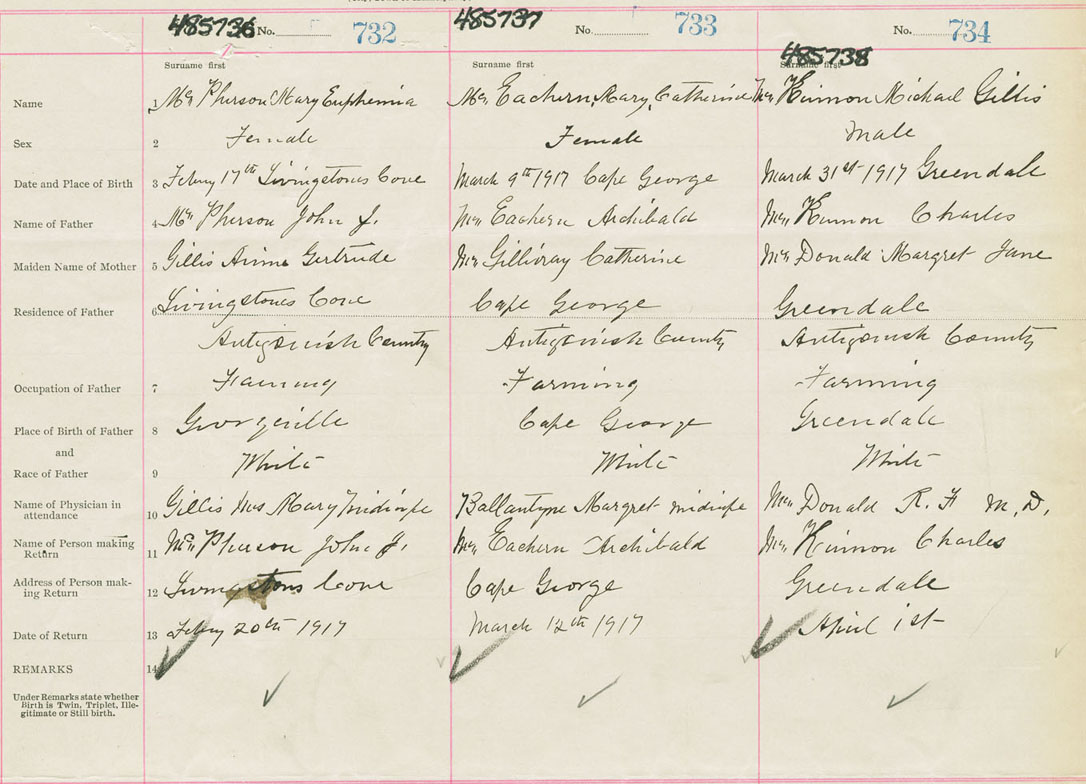 485736 No. 732 485737 No. 733 485738 No. 734
Surname first Surname first Surname first
Name 1 Mc Pherson Mary Euphemia Mc Eachern, Mary, Catherine Mc Kinnon Michael Gillis
Sex 2 Female Female Male
Date and Place of Birth 3 Febuy 17th Livingstones Cove March 9th 1917 Cape George March 31st 1917 Greendale
Name of Father 4 Mc Pherson John J. Mc Eachern Archibald Mc Kinnon Charles
Maiden Name of Mother 5 Gillis Annie Gertrude Mc Gillivray Catherine Mc Donald Margret Jane
Residence of Father 6 Livingstones Cove Cape George Greendale
Antigonish County Antigonish County Antigonish County
Occupation of Father 7 Farming Farming Farming
Place of Birth of Father 8 Georgeville Cape George Greendale
and
Race of Father 9 White White White
Name of Physician in attendance 10 Gillis Mary midwife Ballantyne Margret midwife Mc Donald R. F M. D.
Name of Person making Return 11 Mc Pherson John J. Mc Eachern Archibald Mc Kinnon Charles
Address of Person making Return 12 Livingstons Cove Cape George Greendale
Date of Return 13 Febuy 20th 1917 March 12th 1917 April 1st
REMARKS 14
Under Remarks state whether
Birth is Twin, Triplet, Ille-
gitimate or Still birth.